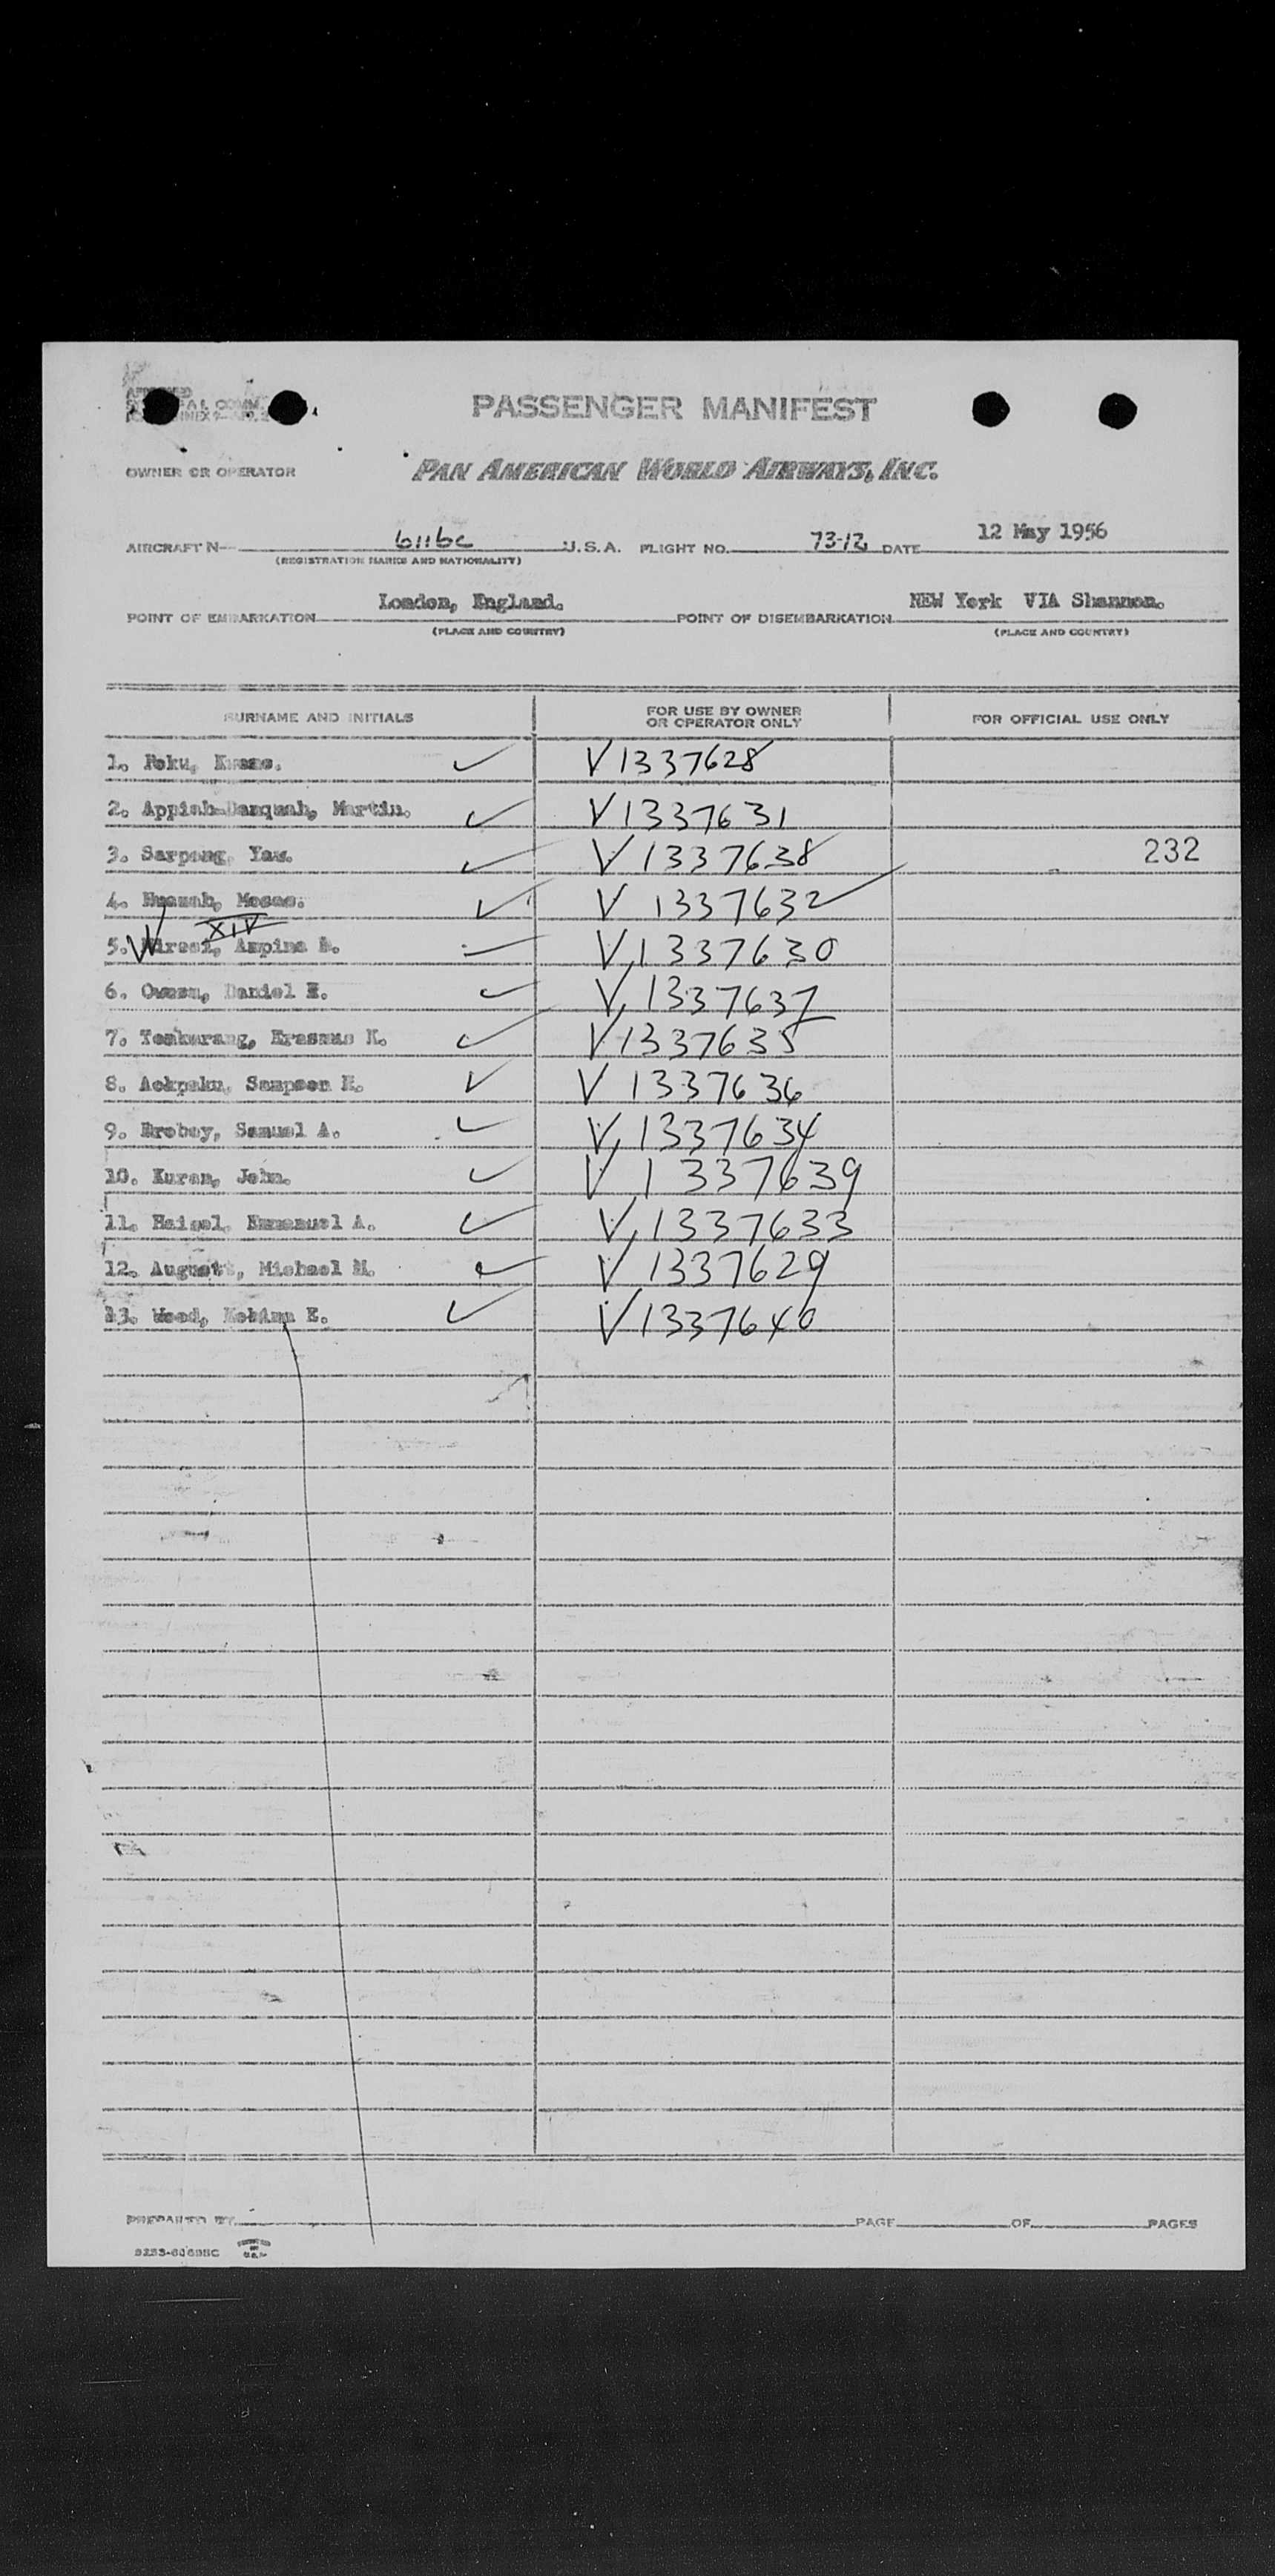 PASSENGER MANIFEST
OWNER OR OPERATOR PAN AMERICAN WORLD AIRWAYS, INC.
AIRCRAFT N- 6116C U.S.A. FLIGHT NO. 73-12 DATE 12 May 1956
(REGISTRATION MARKS AND NATIONALITY)
POINT OF EMBARKATION London, England. POINT OF DISEMBARKATION NEW York VIA Shannon.
(PLACE AND COUNTRY) (PLACE AND COUNTRY)
SURNAME AND INITIALS FOR USE BY OWNER OR OPERATOR ONLY FOR OFFICIAL USE ONLY
1. Poku, V1337628
2. Appiah-Danquah, Martin. V1337631
3. Sarpong, Yaw. V1337638 232
4. Moses. V 1337632
XIV
5. W V,1337630
6. Owusu, Daniel E. V,1337637
7. Tenkorang, Erasmus K. V1337635
8. Ackpaku, Sampson K. V 1337636
9. Samuel A. V,1337634
10. Kuran, John. V 1337639
11. Emmanuel A. V,1337633
12. August, Michael M. V 1337629
13. Wood, E. V1337640
PREPARED BY PAGE OF PAGES
PRINTED IN U.S.A.